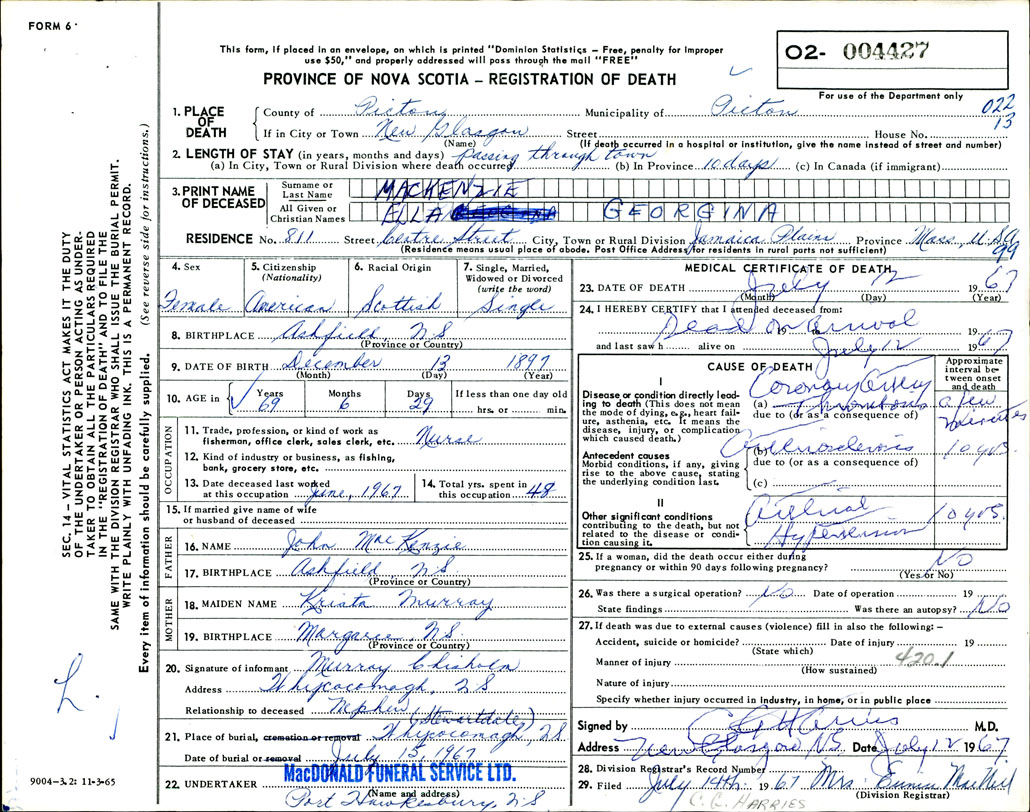 FORM 6
This form, if placed in an envelope, on which is printed "Dominion Statistics – Free, penalty for improper
use $50," and properly addressed will pass through the mail "FREE"
PROVINCE OF NOVA SCOTIA – REGISTRATION OF DEATH
O2- 004427
For use of the Department only
022
13
1. PLACE OF DEATH
County of Pictou Municipality of Pictou
If in City or Town New Glasgow Street House No.
(Name) (If death occurred in a hospital or institution, give the name instead of street and number)
2. LENGTH OF STAY (in years, months and days) passing through town
(a) In City, Town or Rural Division where death occurred (b) In Province 10 days (c) In Canada (if immigrant)
3. PRINT NAME OF DECEASED
Surname or Last Name MACKENZIE
All Given or Christian Names ELLA GEORGINA
RESIDENCE No. 811 Street Centre Street City, Town or Rural Division Jamaica Plain Province Mass, U.S.A.
(Residence means usual place of abode. Post Office Address for residents in rural parts not sufficient)
99
4. Sex Female
5. Citizenship (Nationality) American
6. Racial Origin Scottish
7. Single, Married, Widowed or Divorced (write the word) Single
8. BIRTHPLACE Ashfield N.S
(Province or Country)
9. DATE OF BIRTH December 13 1897
(Month) (Day) (Year)
10. AGE in Years 69 Months 6 Days 29 If less than one day old hrs. or min.
OCCUPATION
11. Trade, profession, or kind of work as fisherman, office clerk, sales clerk, etc. Nurse
12. Kind of industry or business, as fishing, bank, grocery store, etc.
13. Date deceased last worked at this occupation June, 1967
14. Total yrs. spent in this occupation 48
15. If married give name of wife or husband of deceased
FATHER
16. NAME John MacKenzie
17. BIRTHPLACE Ashfield N.S
(Province or Country)
MOTHER
18. MAIDEN NAME Murray
19. BIRTHPLACE Margaree, N.S
(Province or Country)
20. Signature of informant Murray Chisholm
Address Whycocomagh, N.S
Relationship to deceased Nephew
(Stewartdale)
21. Place of burial, cremation or removal Whycocomagh N.S
Date of burial or removal July 15 1967
22. UNDERTAKER MacDONALD FUNERAL SERVICE LTD.
(Name and address)
Port Hawkesbury, N.S
MEDICAL CERTIFICATE OF DEATH
23. DATE OF DEATH July 12 1967
(Month) (Day) (Year)
24. I HEREBY CERTIFY that I attended deceased from:
Dead on arrival 19
and last saw h alive on July 12 1967
CAUSE OF DEATH
Approximate interval between onset and death
I
Disease or condition directly leading to death (This does not mean the mode of dying, e.g., heart failure, asthenia, etc. It means the disease, injury, or complication which caused death.)
Coronary Artery
(a) Thrombosis a few minutes
due to (or as a consequence of)
Antecedent causes
Morbid conditions, if any, giving rise to the above cause, stating the underlying condition last.
(b) 10 yrs.
due to (or as a consequence of)
(c)
II
Other significant conditions contributing to the death, but not related to the disease or condition causing it.
Arterial Hypertension 10 yrs.
25. If a woman, did the death occur either during pregnancy or within 90 days following pregnancy? No
(Yes or No)
26. Was there a surgical operation? No Date of operation 19
State findings Was there an autopsy? No
27. If death was due to external causes (violence) fill in also the following: –
Accident, suicide or homicide? Date of injury 19
(State which)
420.1
Manner of injury
(How sustained)
Nature of injury
Specify whether injury occurred in industry, in home, or in public place
Signed by C G Harries M.D.
Address New Glasgow N.S. Date July 12 1967
28. Division Registrar's Record Number
29. Filed July 14th 1967 Mrs.
(Division Registrar)
C. G. HARRIES
SEC. 14 – VITAL STATISTICS ACT MAKES IT THE DUTY
OF THE UNDERTAKER OR PERSON ACTING AS UNDER-
TAKER TO OBTAIN ALL THE PARTICULARS REQUIRED
IN THE "REGISTRATION OF DEATH" AND TO FILE THE
SAME WITH THE DIVISION REGISTRAR WHO SHALL ISSUE THE BURIAL PERMIT.
WRITE PLAINLY WITH UNFADING INK. THIS IS A PERMANENT RECORD.
Every item of information should be carefully supplied. (See reverse side for instructions.)
9004-3.2: 11-3-65